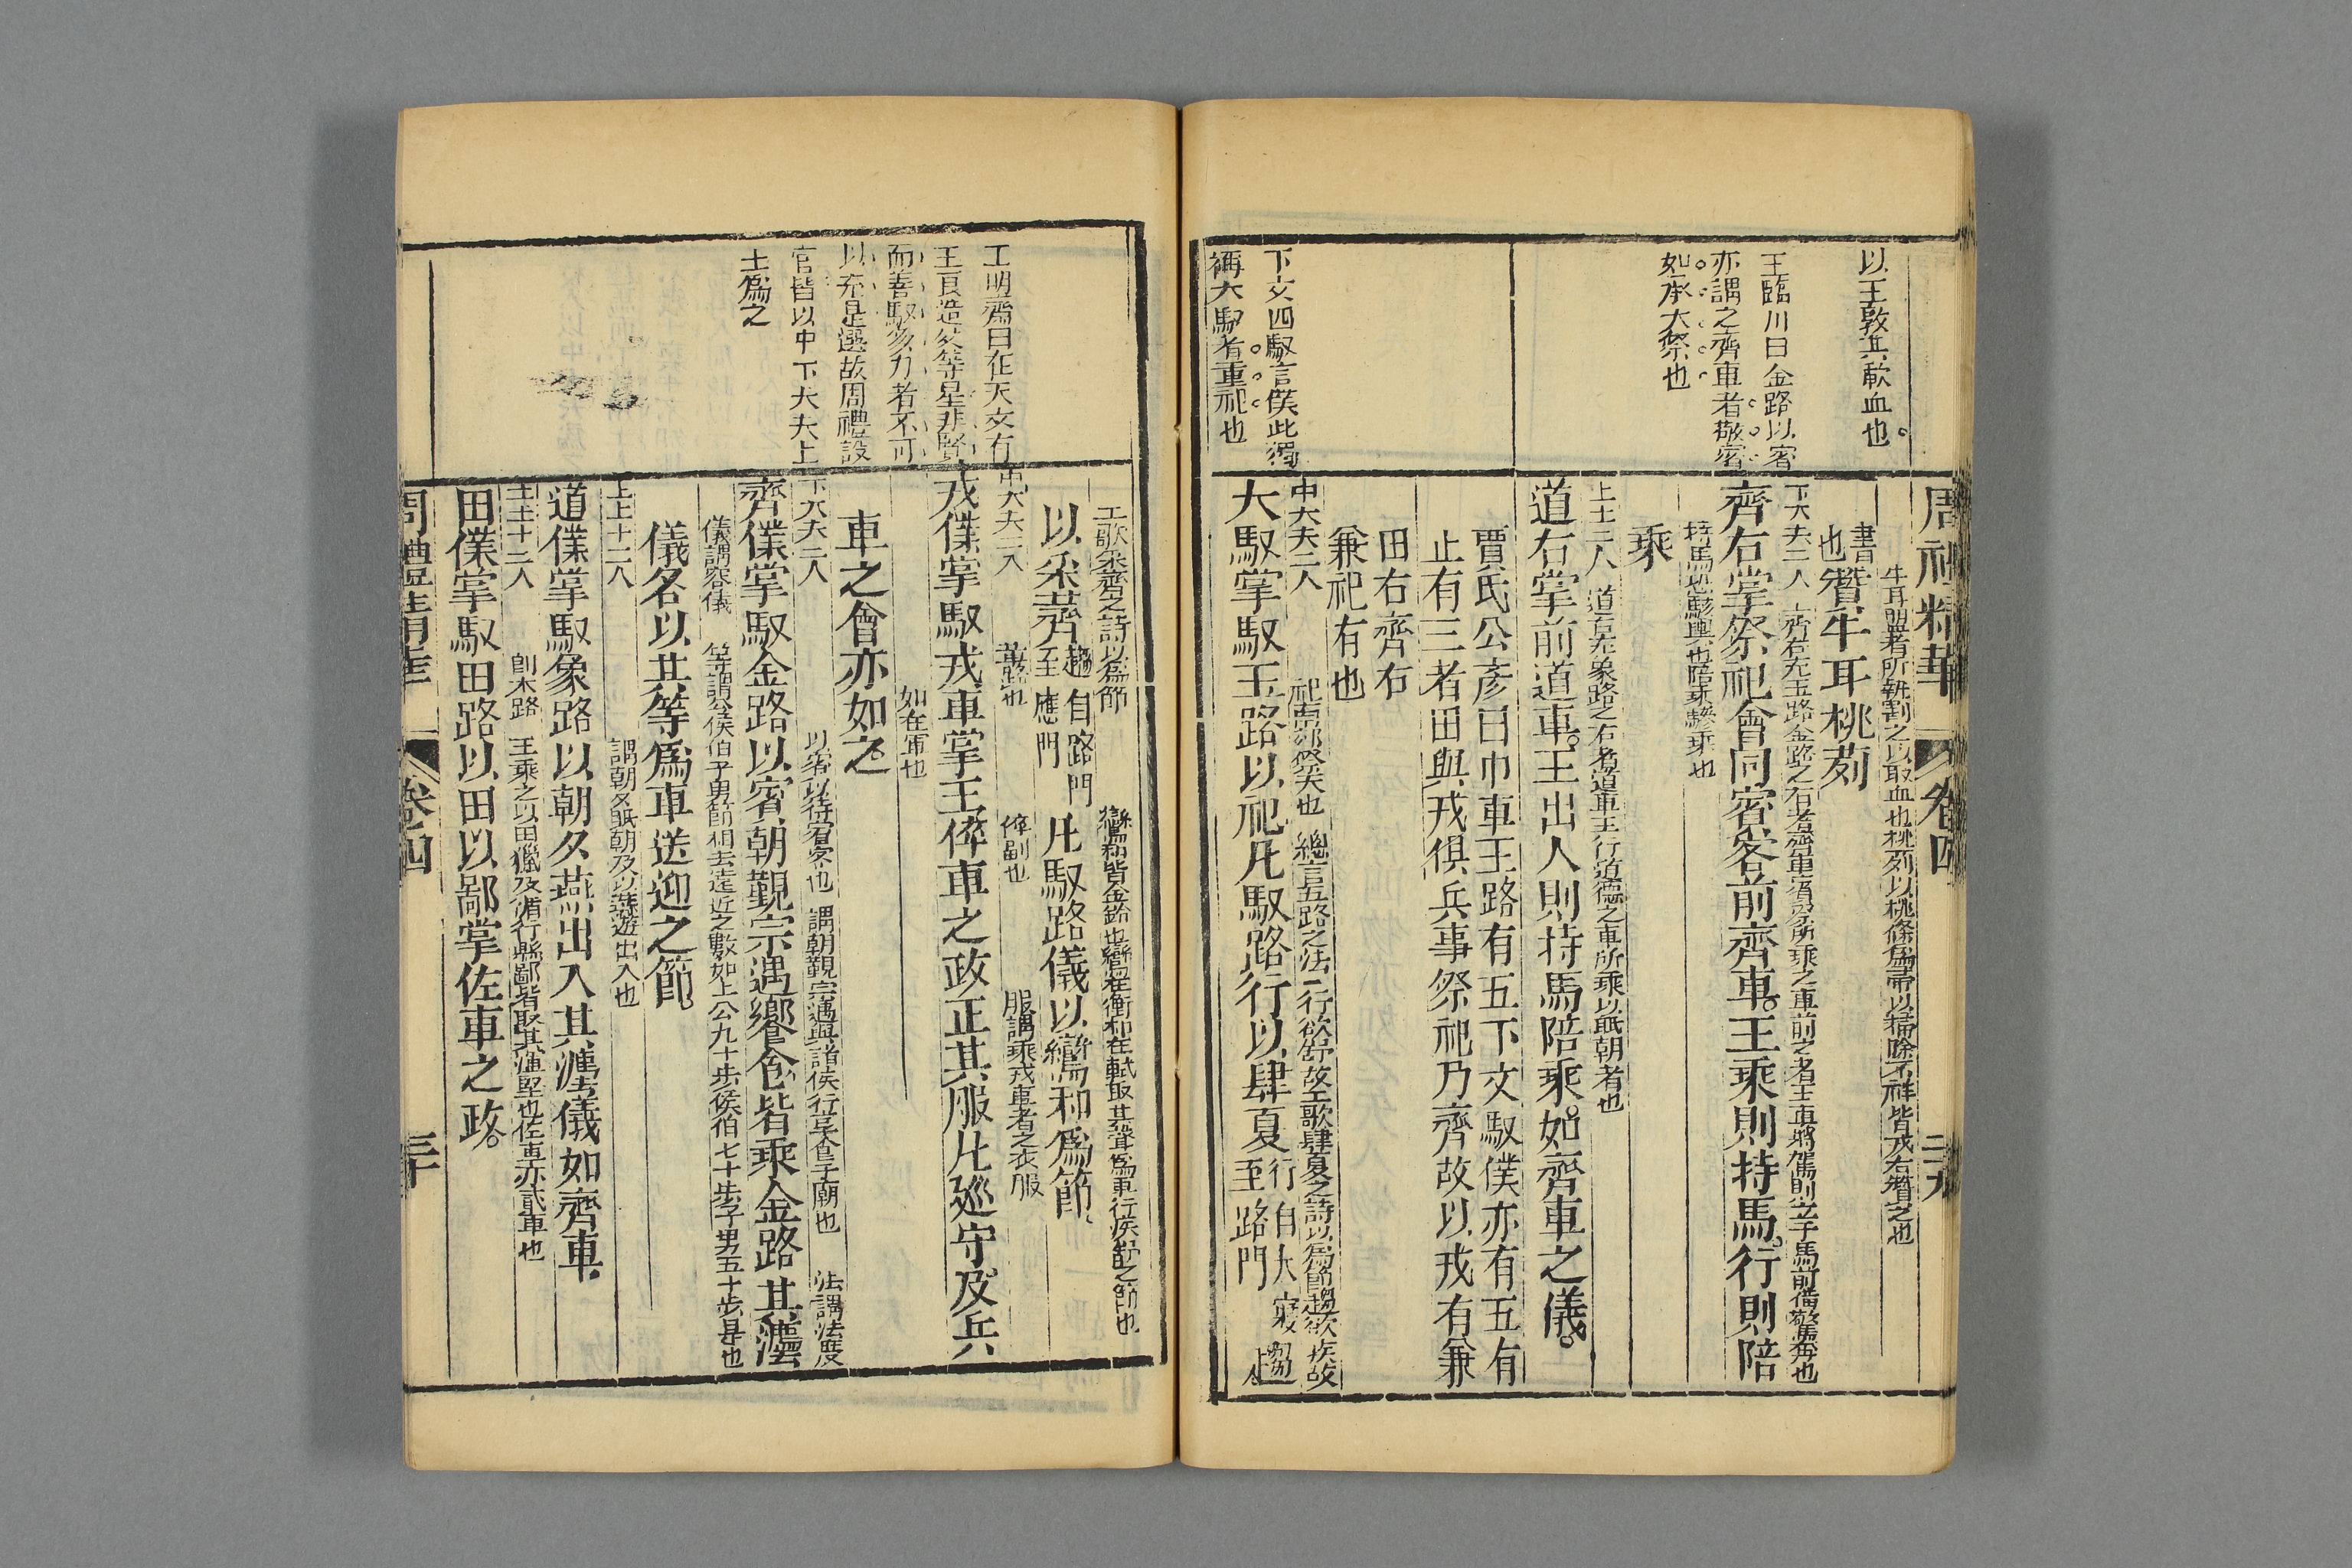 周禮精華
卷四
二十九
以玉敦共歃血也
王臨川曰金路以賓
亦謂之齊車者敬賓
如承大祭也
下文四馭言僕此獨
稱大馭者重祀也
牛耳盟者所執割之以取血也桃茢以桃條爲帚以掃除不祥皆戎右贊之也
書也贊牛耳桃茢
下大夫二人 齊右充玉路金路之右者齊車賓祭所乘之車前之者王車將駕則立于馬前備驚奔也
齊右掌祭祀會同賓客前齊車王乘則持馬行則陪
持馬恐駭輿也陪乘驂乘也
乘
上士二人 道右充象路之右者道車王行道德之車所乘以眡朝者也
道右掌前道車王出入則持馬陪乘如齊車之儀
賈氏公彥曰巾車王路有五下文馭僕亦有五有
止有三者田與戎俱兵事祭祀乃齊故以戎有兼
田右齊右
兼祀有也
中大夫二人 祀南郊祭天也 總言五路之法 行欲舒故工歌肆夏之詩以爲節趨欲疾故
大馭掌馭玉路以祀凡馭路行以肆夏行自大寢至路門趨
工明齋曰在天文有
王良造父等星非賢
而善馭多力者不可
以充是選故周禮設
官皆以中下大夫上
士爲之
工歌采齊之詩以爲節 鑾和皆金鈴也鑾在衡和在軾取其聲爲車行疾舒之節也
以采薺趨自路門至應門凡馭路儀以鑾和爲節
中大夫二人 革路也 倅副也 服謂乘戎車者之衣服
戎僕掌馭戎車掌王倅車之政正其服凡巡守及兵
如在軍也
車之會亦如之
下大夫二人 以賓以待賓客也 謂朝覲宗遇與諸侯行享食于廟也 法謂法度
齊僕掌馭金路以賓朝覲宗遇饗食皆乘金路其灋
儀謂容儀 等謂公侯伯子男節相去遠近之數如上公九十步侯伯七十步子男五十步是也
儀各以其等爲車送迎之節
上士十二人 謂朝夕眡朝及以燕遊出入也
道僕掌馭象路以朝夕燕出入其灋儀如齊車
上士十二人 卽木路 王乘之以田獵及循行縣鄙皆取其滙堅也佐車亦貳車也
田僕掌馭田路以田以鄙掌佐車之政
周禮精華
卷四
三十